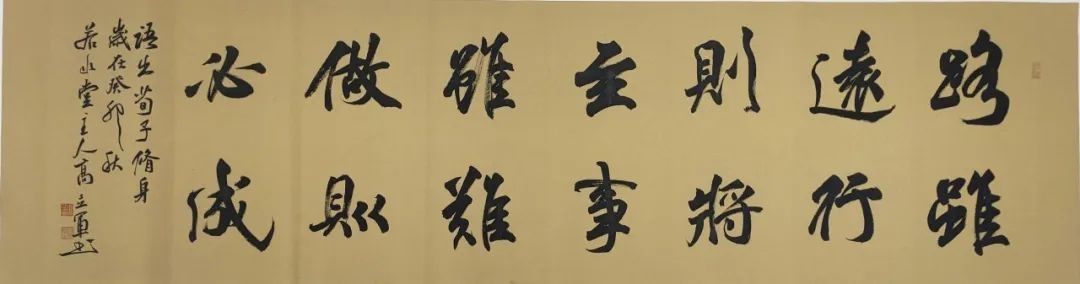 路雖
遠行
則將
至事
雖難
做則
必成
語出荀子脩身
歲在癸卯秋
若水堂主人高立軍書